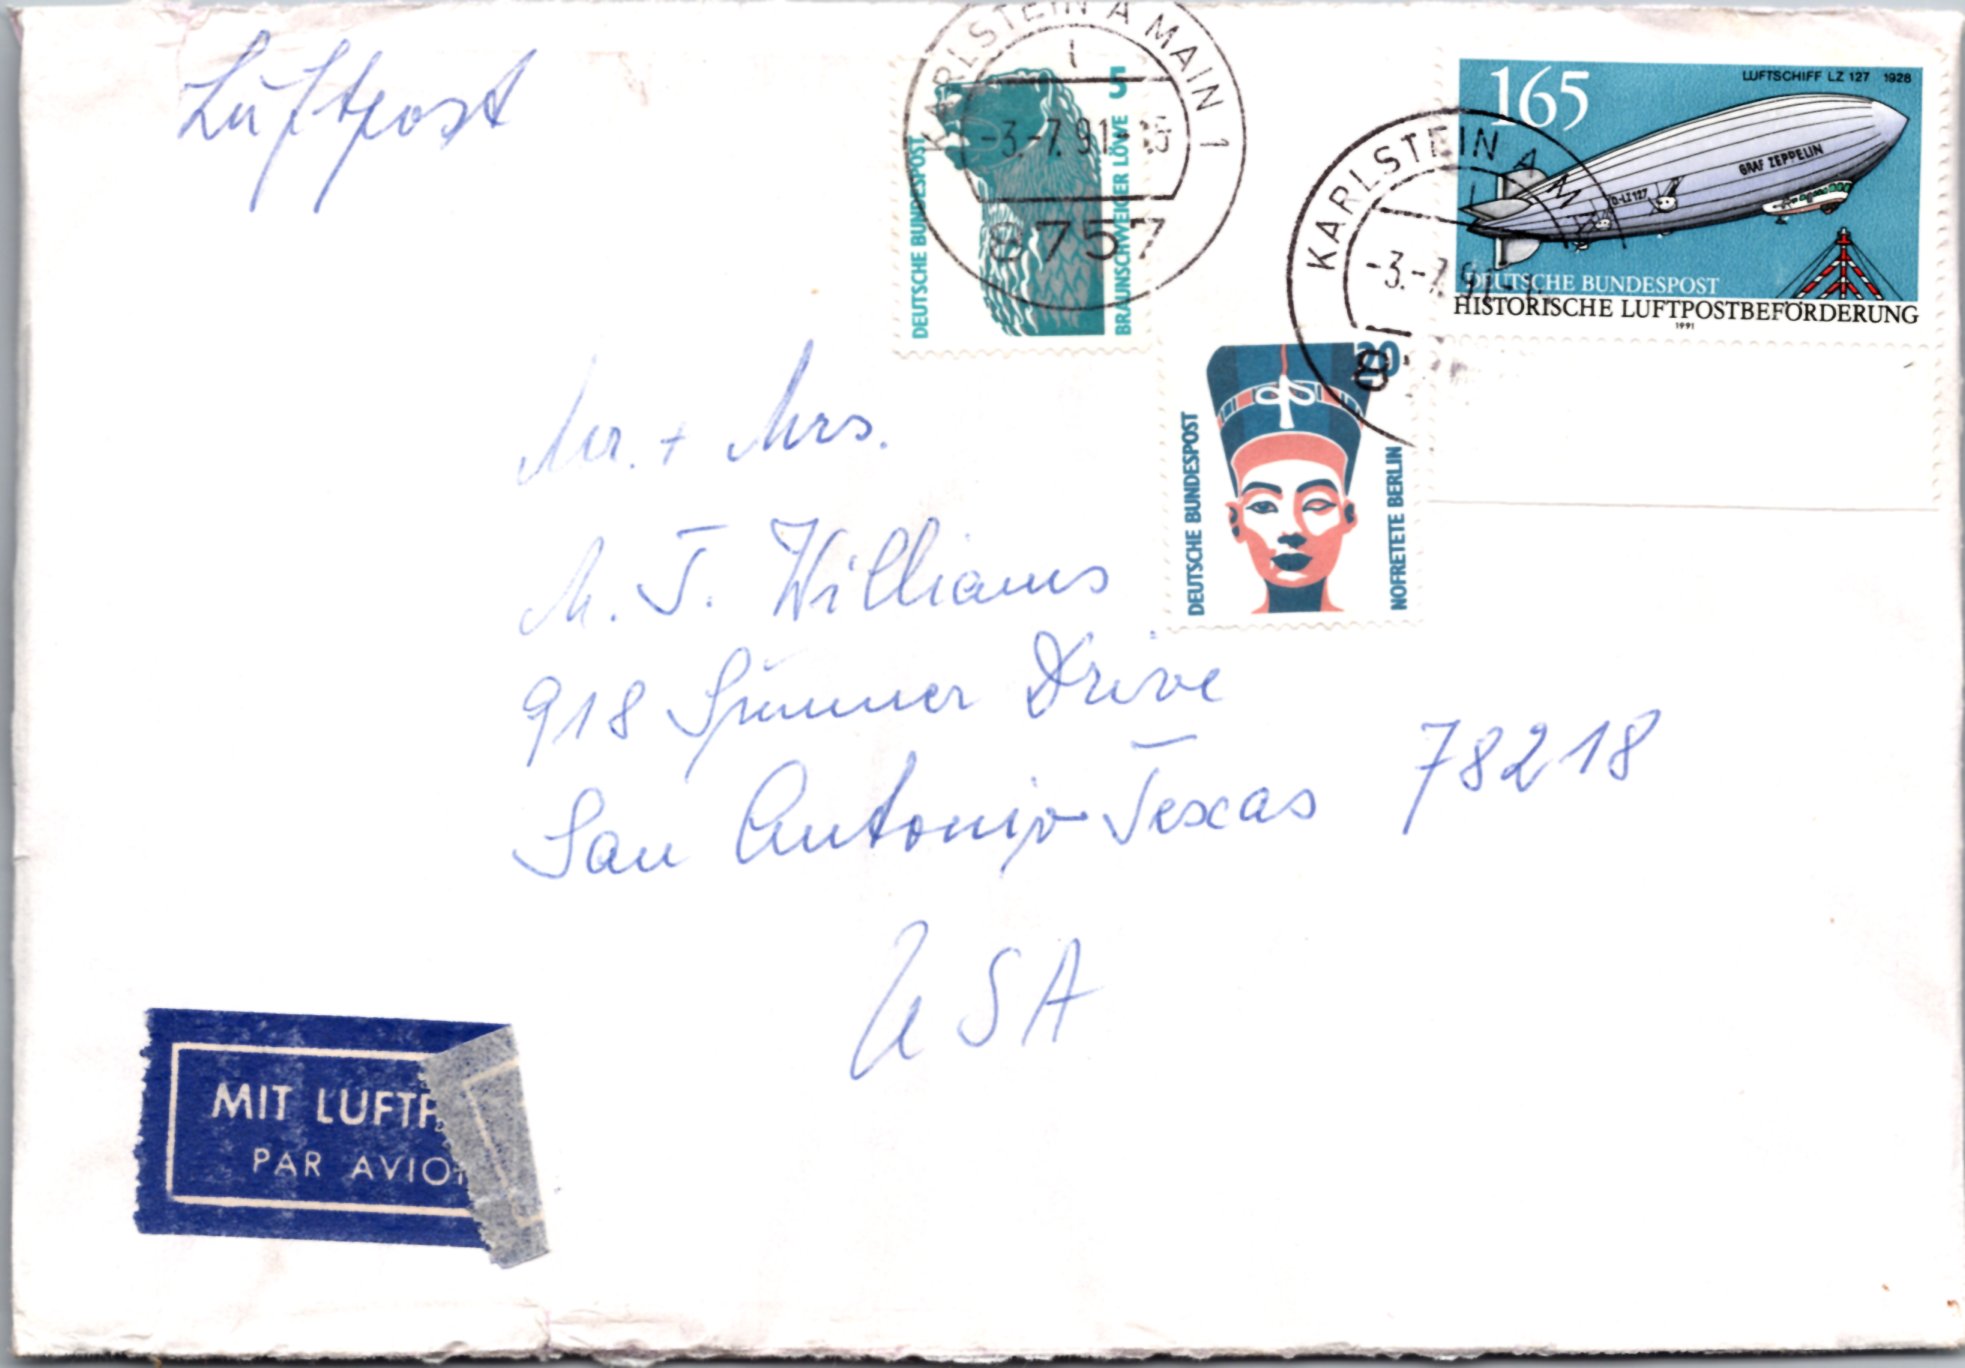 Luftpost
KARLSTEIN A MAIN 1
-3.-7.91-15
8757
5
DEUTSCHE BUNDESPOST
BRAUNSCHWEIGER LÖWE
KARLSTEIN A M
-3.-7.91-
8
165
LUFTSCHIFF LZ 127 1928
GRAF ZEPPELIN
D-LZ127
DEUTSCHE BUNDESPOST
HISTORISCHE LUFTPOSTBEFÖRDERUNG
1991
20
DEUTSCHE BUNDESPOST
NOFRETETE BERLIN
Mr. + Mrs.
M. J. Williams
918 Drive
San Antonio Texas 78218
USA
MIT LUFTP
PAR AVION